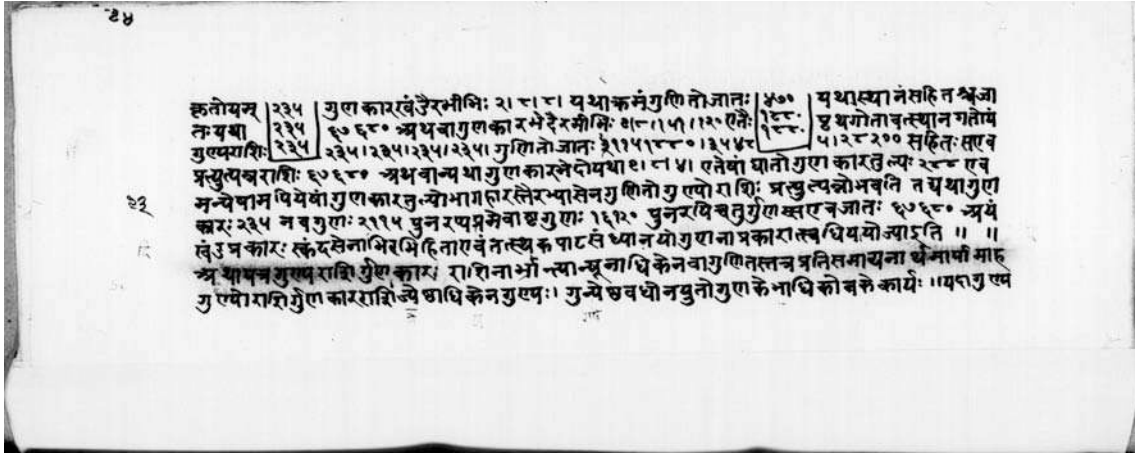 २४
कृतोयम् २३५ गुणकारखंडैरमीभिः २।८।८। यथाक्रमंगुणितोजातः ४७० यथास्थानंसहितश्चजा
तःयथा २३५ ६७६८० अथवागुणकारभेदैरमीभिः ९।८।१५१।१२० एतैः १८८० पृथगोतावत्स्थानगतोयं
गुण्यराशिः २३५ २३५।२३५।२३५।२३५। गुणितोजातः २११५१८८०।३५४८ १८८० ५।२८२०० सहितःसएव
प्रत्युत्पन्नराशिः ६७६८० अथवान्यथागुणकारभेदोयथा ९।८।४। एतेषांघातोगुणकारतुल्यः २८८ एव
मन्येषामपियेषांगुणकारतुल्योभागहारस्तैरभ्यासेनगुणितोगुण्योराशिः प्रत्युत्पन्नोभवति तद्यथागुण
२३ कारः २३५ नवगुणः २११५ पुनरप्ययमेवाष्टगुणः १६९२० पुनरपिचतुर्गुणस्सएवजातः ६७६८० अयं
खंडप्रकारः स्कंदसेनाभिरभिहिताएवंतत्स्थकपाटसंध्यानयोगुणनाप्रकारात्स्वधिययोज्याइति ॥ ॥
अथयत्रगुण्यराशिर्गुणकार राशिना न्यूनाधिकेनवागुणितस्तत्र र्थमार्यामाह
गुण्योराशिर्गुणकारराशिज्येष्ठाधिकेनगुण्यः। गुन्येष्ठवधोनयुतोगुणके कार्यः ॥यदागुण्ये